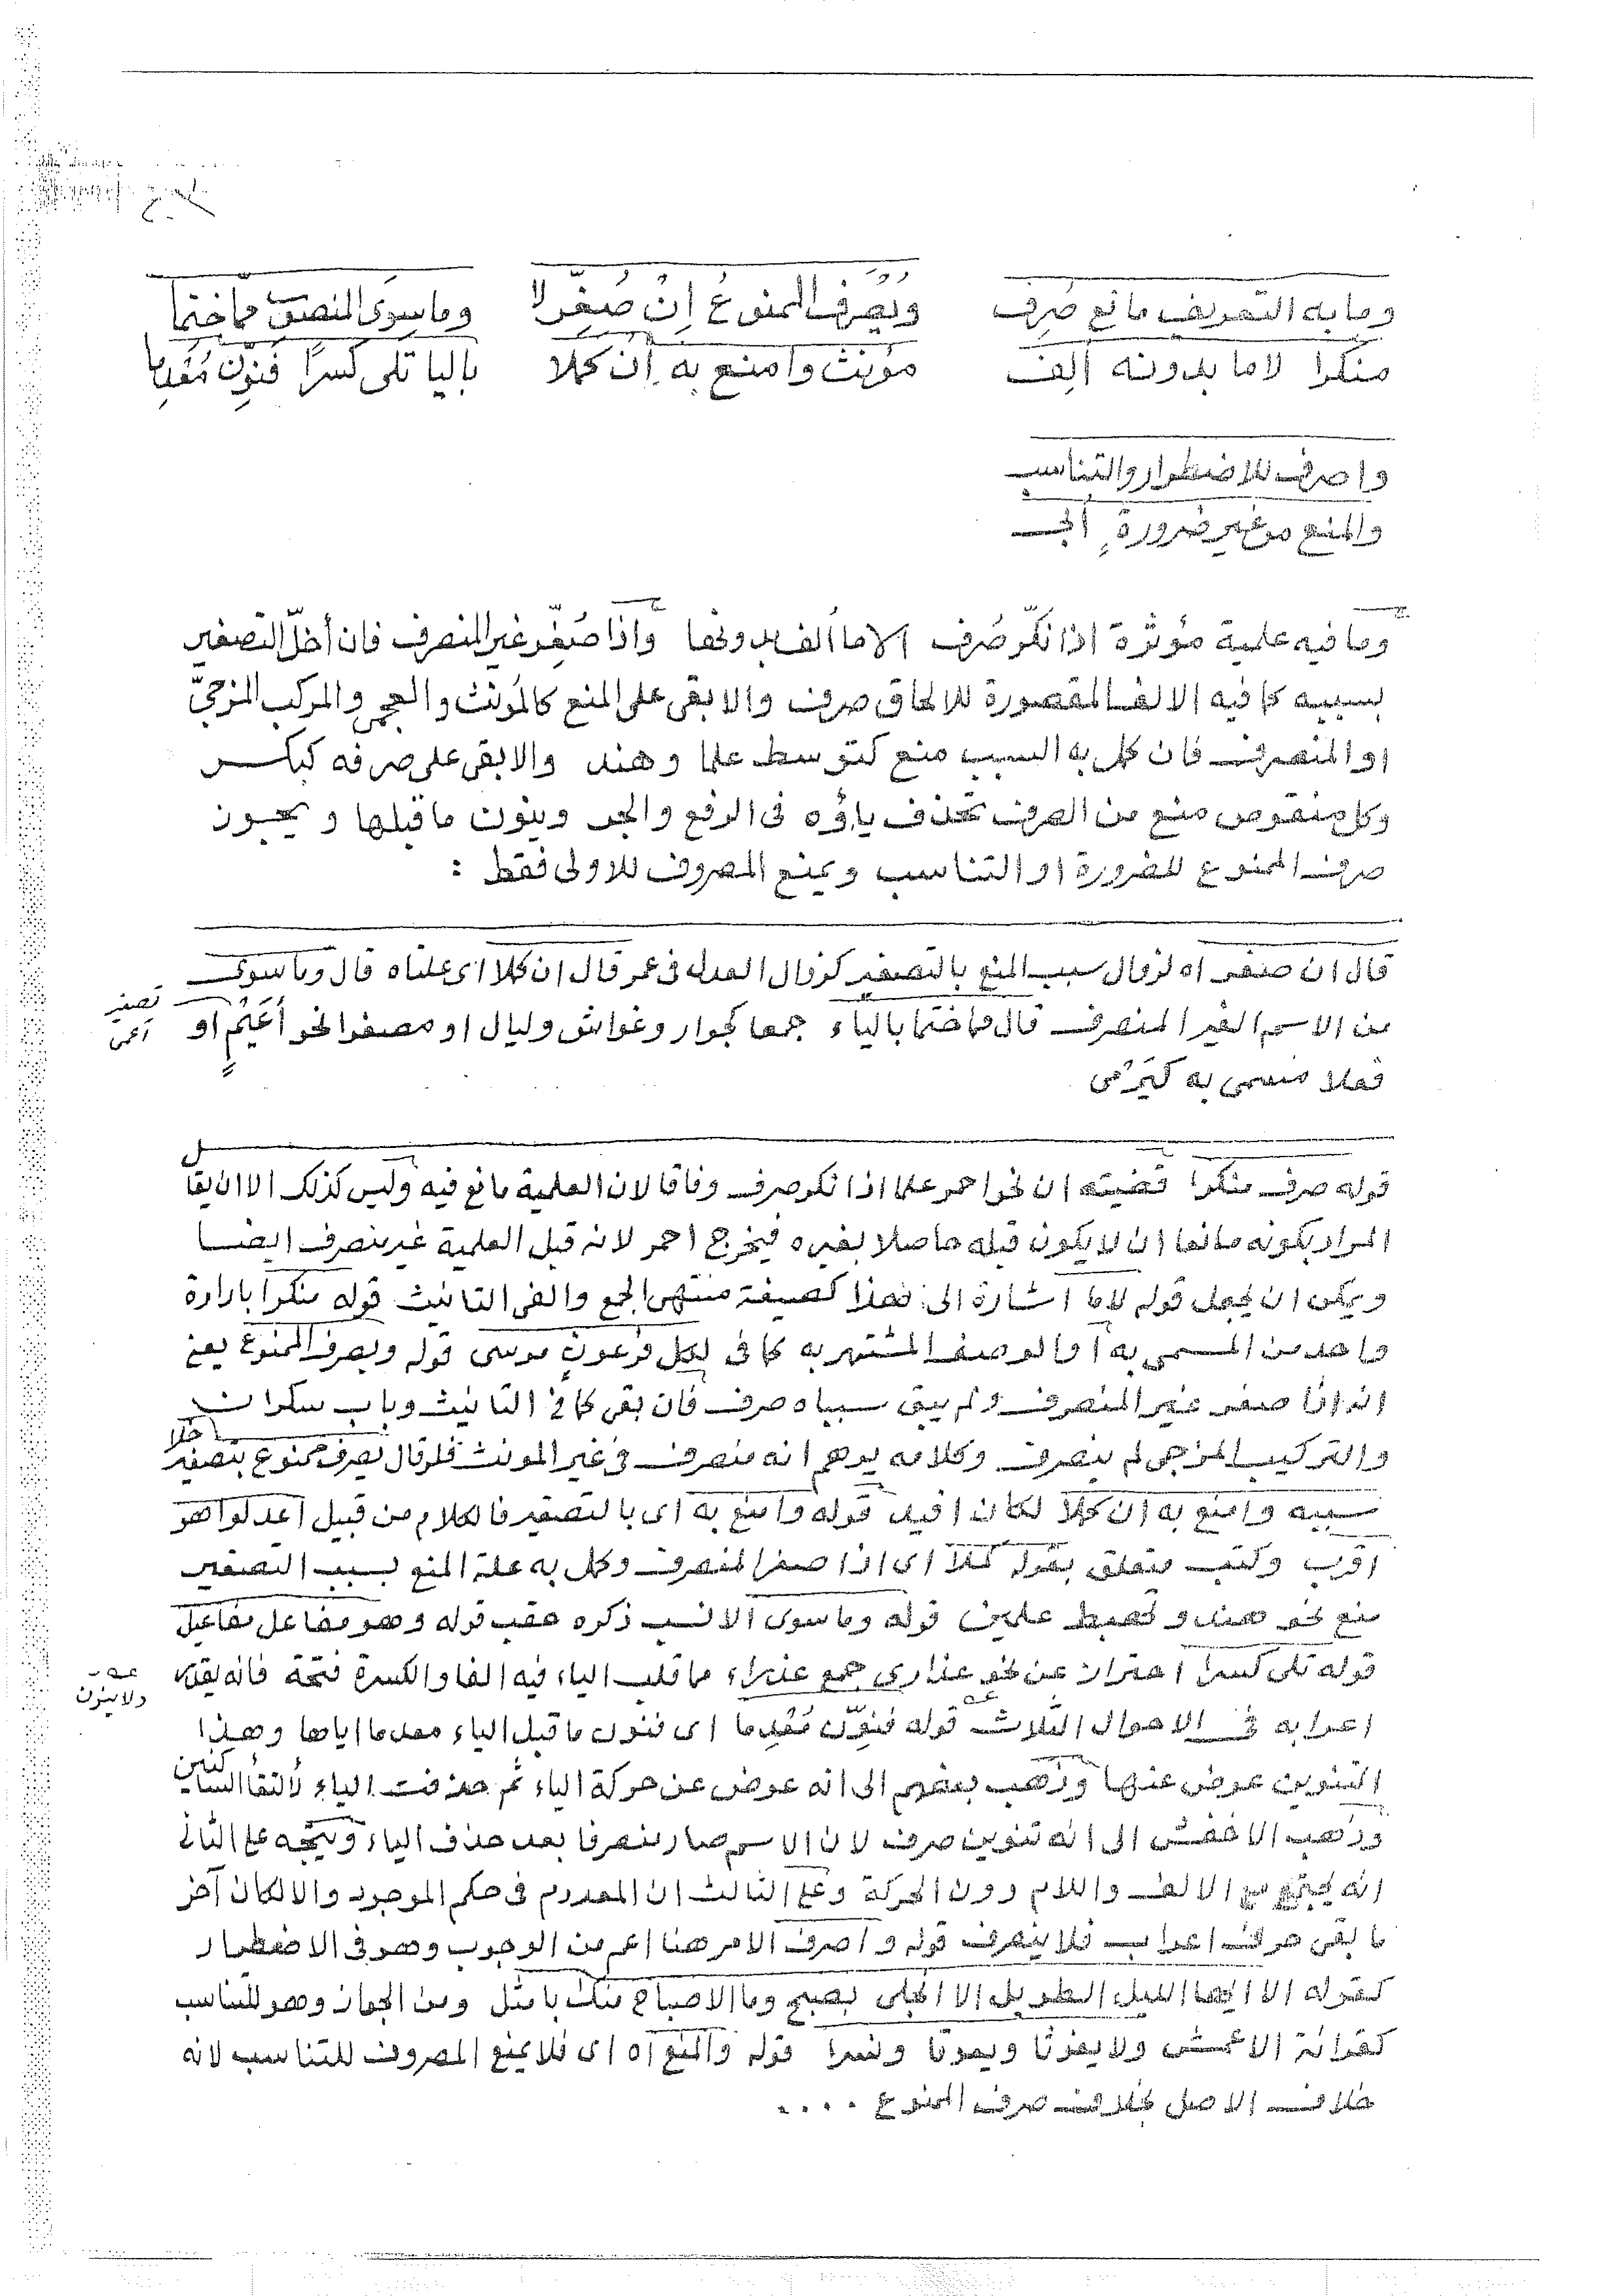 وما به التعريف مانع صرف
منكرا لاما بدونه ألِف
ويُصرف الممنوعُ اِنْ صُغِّر لا
مؤنث وامنع به إن كملا
وما سِوَى المنصرف مما ختما
باليا تلى كسرًا فنوِّن مُقدِما
واصرف للاضطرار والتناسب
والمنع من غير ضرورةٍ أبى
وما فيه علمية مؤثرة اذا نكّر صُرف الا ما ألف بدونها واذا صُغِّر غير المنصرف فان أخلّ التصغير
بسببيه كما فيه الالف المقصورة للالحاق صرف والا بقى على المنع كالمؤنث والعجمى والمركب المزجىّ
او المنصرف فان كمل به السبب منع كتوسط علما وهند والا بقى على صرفه كبكر
وكل منقوص منع من الصرف تحذف ياؤه فى الرفع والجر وينون ما قبلها ويجوز
صرف الممنوع للضرورة او التناسب ويمنع المصروف للاولى فقط :
قال ان صغر اه لزوال سبب المنع بالتصغير كزوال العدل فى عمر قال ان كملا اى علتاه قال وما سوى
من الاسم الغير المنصرف قال مما ختما بالياء جمعا كجوار وغواش وليال او مصغرا نحو أُعَيْمٍ او
تصغير
اعمى
فعلا مسمى به كيَرْمى
قوله صرف منكرا قضيته ان نحو احمر علما اذا نكر صرف وفاقا لان العلمية مانع فيه وليس كذلك الا ان يقال
المراد بكونه مانعا ان لا يكون قبله حاصلا بغيره فيخرج احمر لانه قبل العلمية غير منصرف ايضا
ويمكن ان يجعل قوله لاما اشارة الى هذا كصيغة منتهى الجمع والفى التانيث قوله منكرا بارادة
واحد من المسمى به أو الوصف المشتهر به كما فى لكل فرعون موسى قوله ويصرف الممنوع يعنى
انه اذا صغر غير المنصرف ولم يبق سبباه صرف فان بقى كما فى التانيث وباب سكران
والتركيب المزجى لم ينصرف وكلامه يوهم انه منصرف فى غير المونث فلو قال يصرف ممنوع بتصغير اخلا
سببه وامنع به ان كملا لكان افيد قوله وامنع به اى بالتصغير فالكلام من قبيل اعدلوا هو
اقرب وكتب متعلق بقوله كملا اى اذا صغر المنصرف وكمل به علة المنع بسبب التصغير
منع نحو هند وتهبط علمين قوله وما سوى الانسب ذكره عقب قوله وهو مفاعل مفاعيل
قوله تلى كسرا احتراز عن نحو عذارى جمع عذراء مما قلب الياء فيه الفا والكسرة فتحة فانه يقدر
ولا ينون
اعرابه فى الاحوال الثلاث قوله فنوّن مُقْدِما اى فنون ما قبل الياء معدما اياها وهذا
التنوين عوض عنها وذهب بعضهم الى انه عوض عن حركة الياء ثم حذفت الياء لالتقأ الساكنين
وذهب الاخفش الى انه تنوين صرف لان الاسم صار منصرفا بعد حذف الياء ويتجه على الثانى
انه يجتمع مع الالف واللام دون الحركة وعلى الثالث ان المعدوم فى حكم الموجود والا لكان آخر
ما بقى حرف اعراب فلا ينصرف قوله واصرف الامر هنا اعم من الوجوب وهو فى الاضطرار
كقوله الا ايها الليل الطويل الا انجلى بصبح وما الاصباح منك بامثل ومن الجواز وهو للتناسب
كقرائة الاعمش ولا يغوثا ويعوقا ونسرا قوله والمنع اه اى فلا يمنع المصروف للتناسب لانه
خلاف الاصل بخلاف صرف الممنوع ....